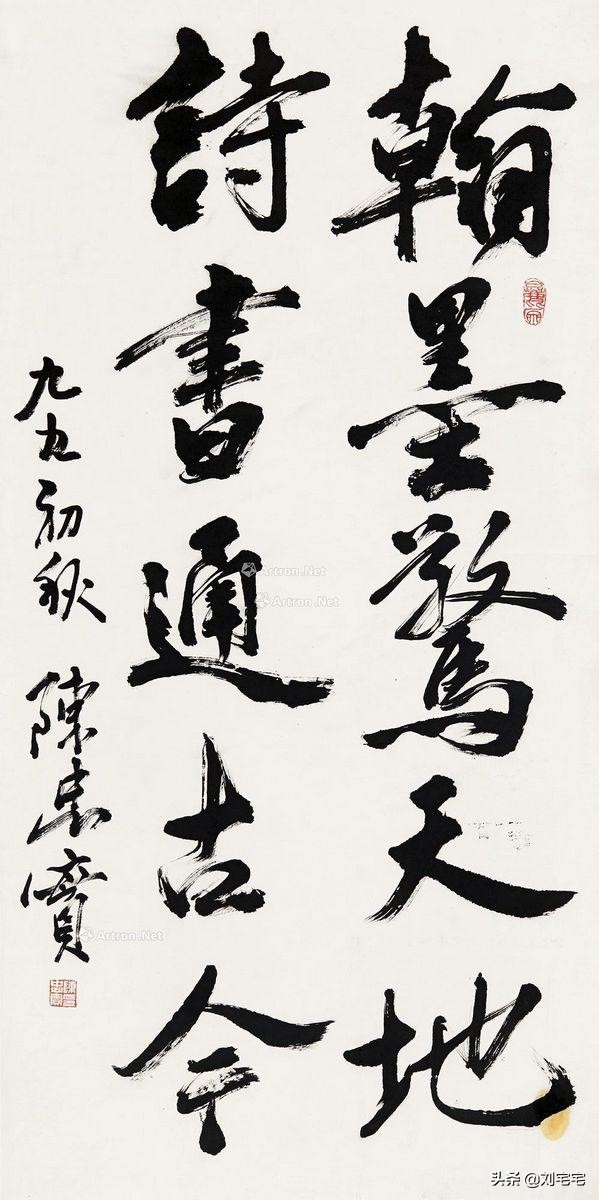 翰墨驚天地
詩書通古今
九九初秋 陳忠實
Artron.Net
Artron.Net
Artron.Net
头条 @刘宅宅